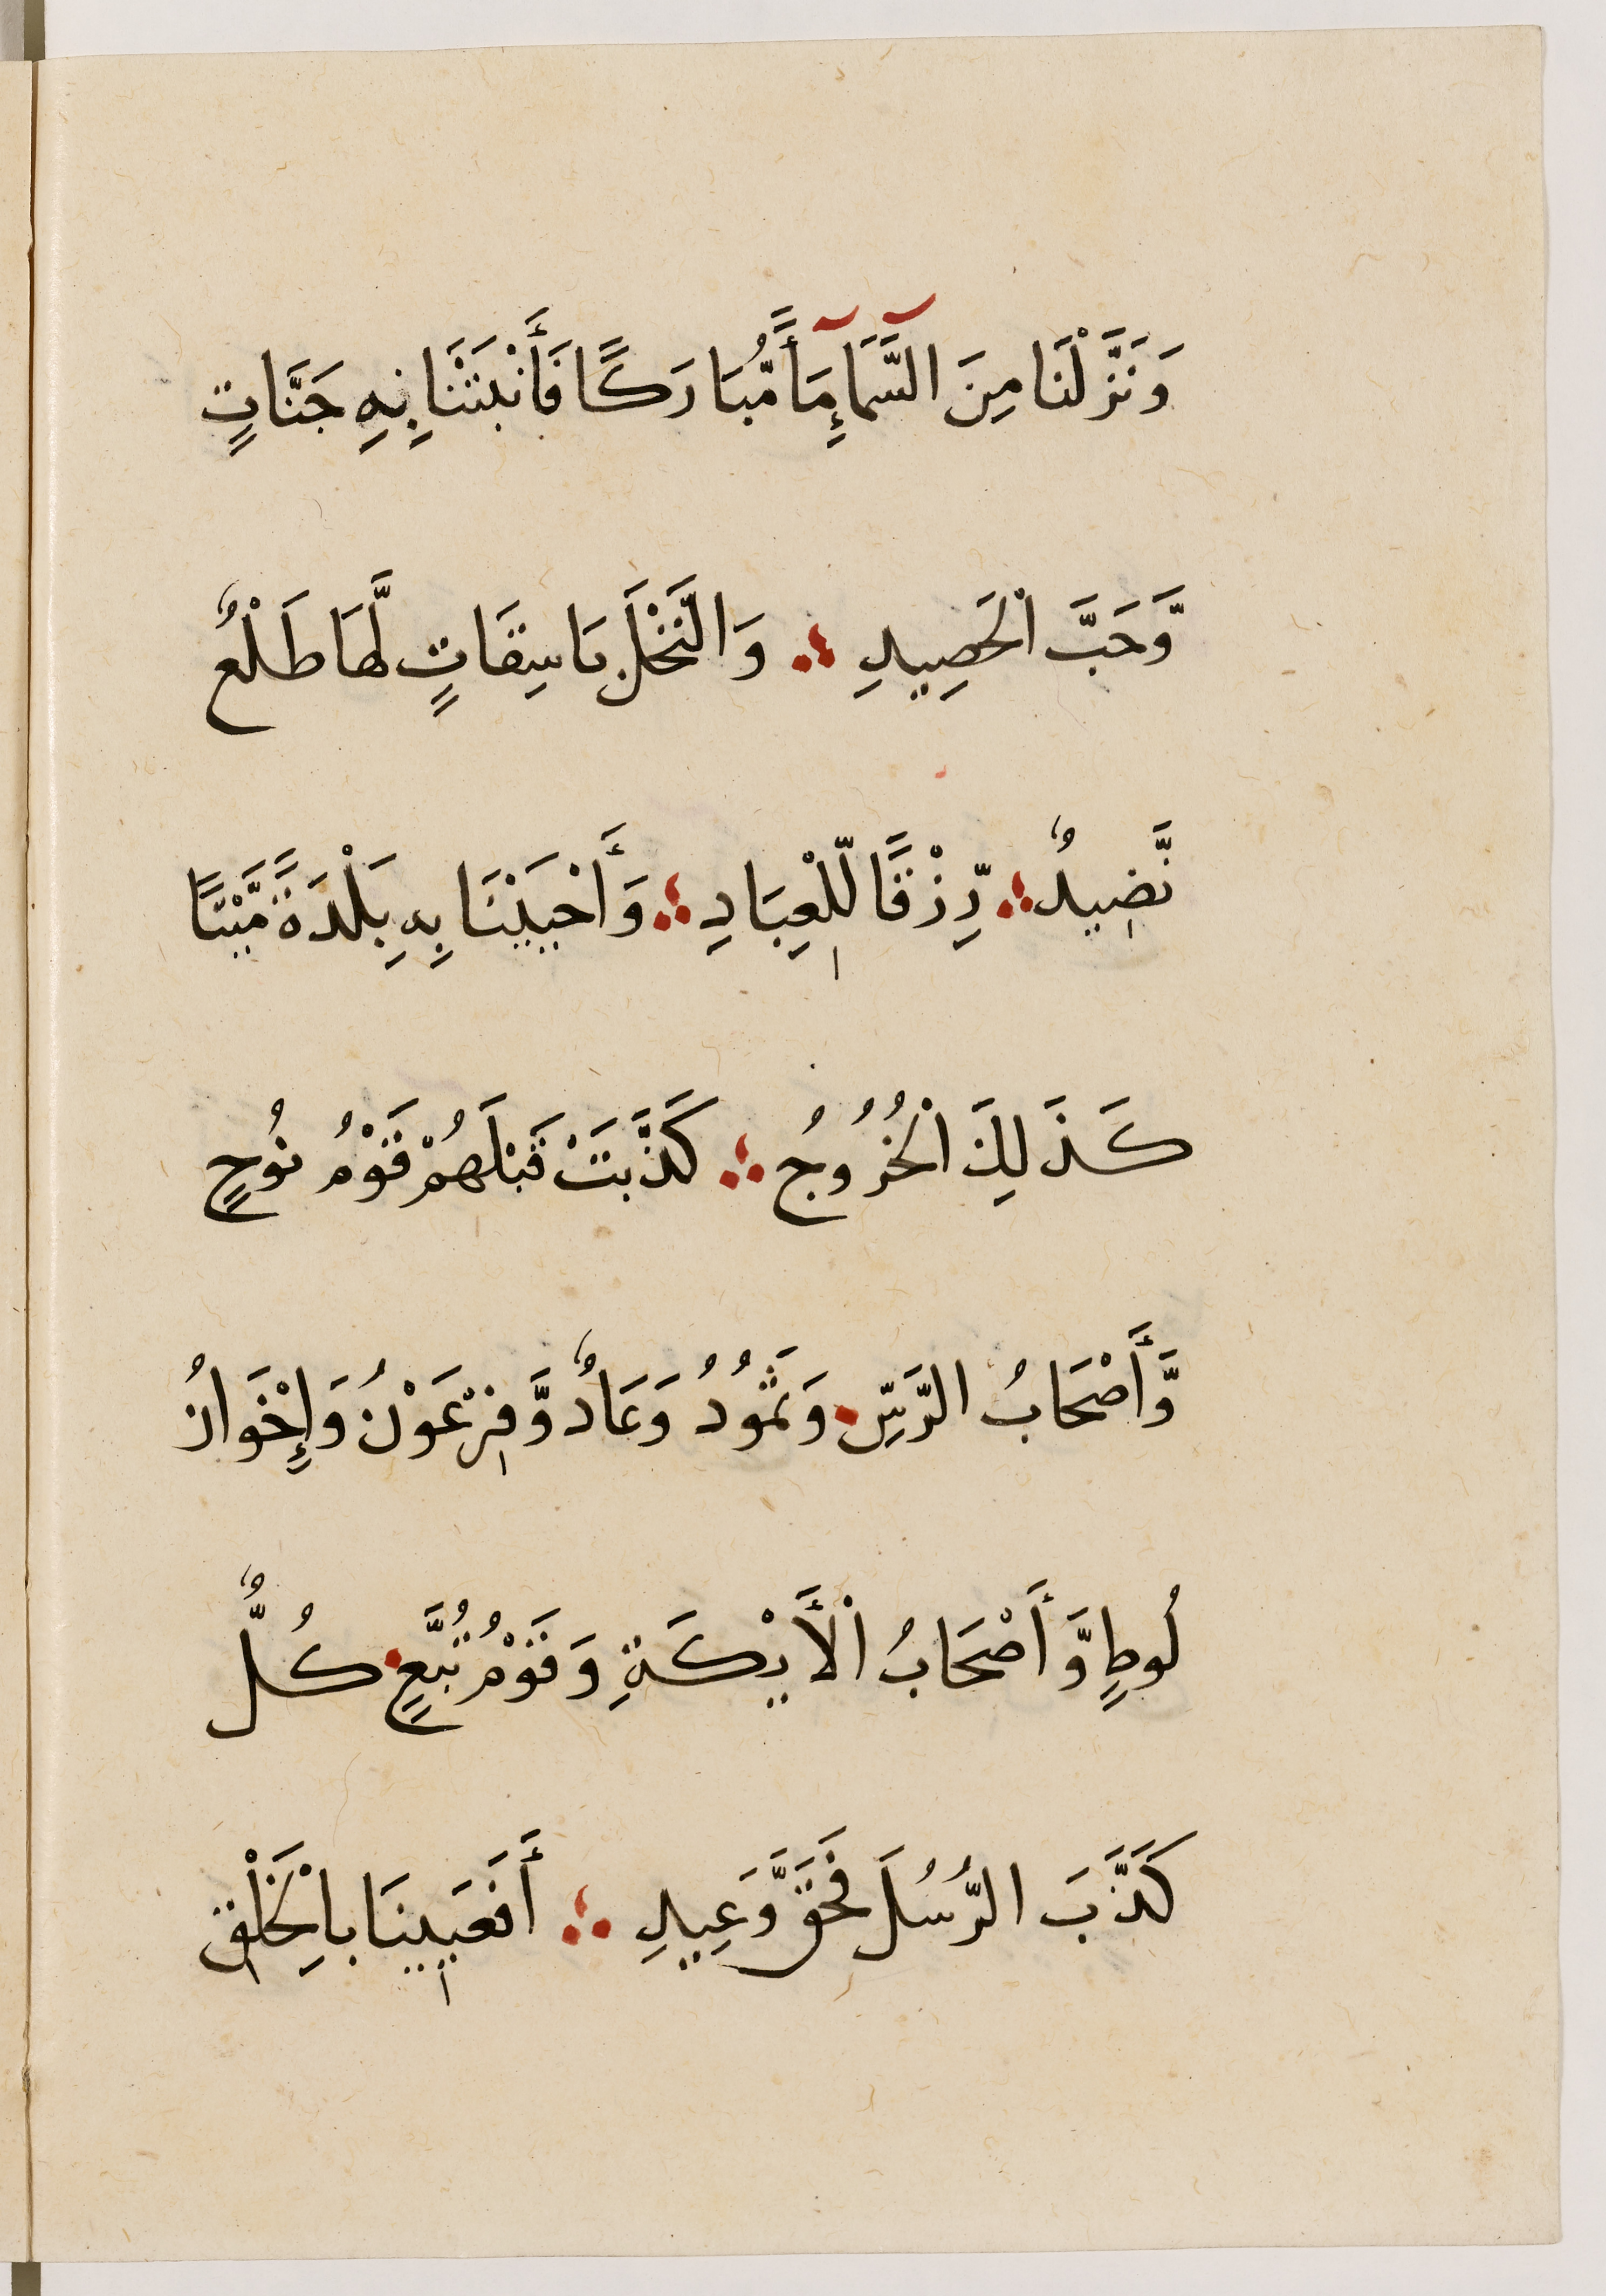 وَنَزَّلْنَا مِنَ السَّمَآءِ مَآءً مُّبَارَكًا فَأَنْبَتْنَا بِهِ جَنَّاتٍ
وَّحَبَّ الْحَصِيدِ ؞ وَالنَّخْلَ بَاسِقَاتٍ لَّهَا طَلْعٌ
نَّضِيدٌ ؞ رِّزْقًا لِّلْعِبَادِ ؞ وَأَحْيَيْنَا بِهِ بَلْدَةً مَّيْتًا
كَذَلِكَ الْخُرُوجُ ؞ كَذَّبَتْ قَبْلَهُمْ قَوْمُ نُوحٍ
وَّأَصْحَابُ الرَّسِّ وَثَمُودُ وَعَادٌ وَّفِرْعَوْنُ وَإِخْوَانُ
لُوطٍ وَّأَصْحَابُ الْأَيْكَةِ وَقَوْمُ تُبَّعٍ كُلٌّ
كَذَّبَ الرُّسُلَ فَحَقَّ وَعِيدِ ؞ أَفَعَيِينَا بِالْخَلْقِ